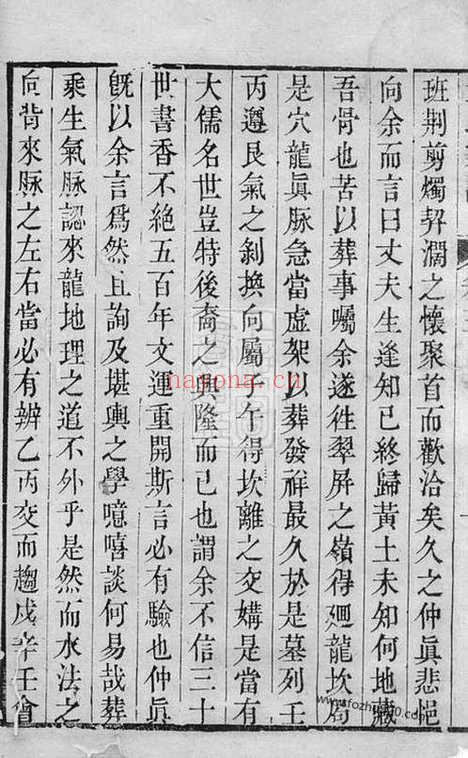 班荆剪燭契濶之懷聚首而歡洽矣久之仲眞悲悒
向余而言曰丈夫生逢知己終歸黃土未知何地藏
吾骨也苦以葬事囑余遂徃翠屏之嶺得廻龍坎局
是穴龍眞脉急當虛架以葬發祥最久於是墓列壬
丙遵艮氣之剝換向屬子午得坎離之交媾是當有
大儒名世豈特後裔之興隆而已也謂余不信三十
世書香不絶五百年文運重開斯言必有驗也仲眞
旣以余言爲然且詢及堪輿之學噫嘻談何易哉葬
乘生氣脉認來龍地理之道不外乎是然而水法之
向背來脉之左右當必有辨乙丙交而趨戌辛壬會
nayona.cn
www.fozhu920.com